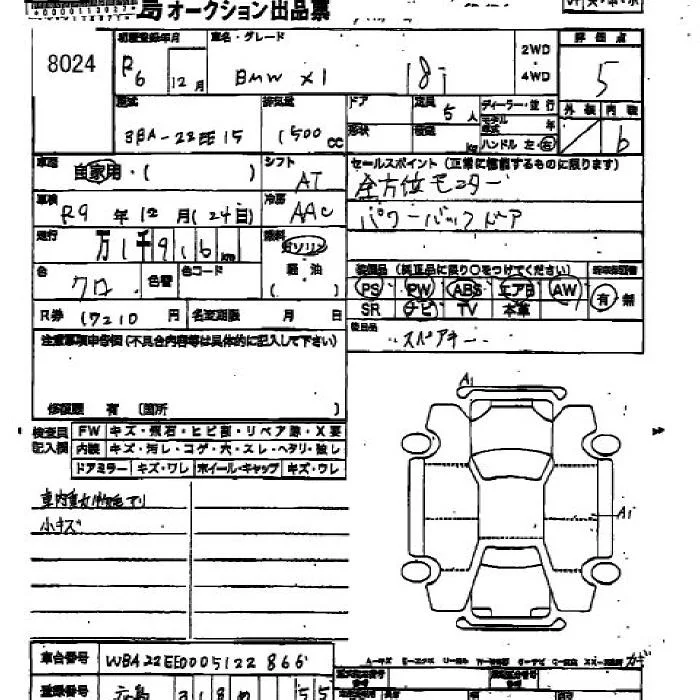 オークション出品票
8024
初度登録年月
車名・グレード
R6 12月 BMW X1 18i
2WD
4WD
評価点
5
型式
排気量
ドア
定員
5人
ディーラー・並行
外装 内装
3BA-22EE15 1500cc
形状
年
ハンドル 左・右
b
車歴
自家用・( )
シフト
AT
セールスポイント (正常に機能するものに限ります)
全方位モニター
車検
R9年12月(24日)
冷房
AAC
パワーバックドア
走行
万1千916km
燃料
ガソリン
軽油
( )
色
クロ
色替
色コード
装備品 (純正品に限り○をつけてください)
PS PW ABS エアB AW
有・無
SR ナビ TV 本革
R券 17210円
名変期限 月 日
後日品
スペアキー
注意事項申告欄 (不具合内容等は具体的に記入して下さい)
修復歴 有 (箇所 )
検査員
記入欄
FW キズ・飛石・ヒビ割・リペア跡・X要
内装 キズ・汚レ・コゲ・穴・スレ・ヘタリ・強し
ドアミラー キズ・ワレ ホイール・キャップ キズ・ウレ
A1
A1
小キズ
車台番号 WBA22EE0005122866
登録番号 広島 318
55